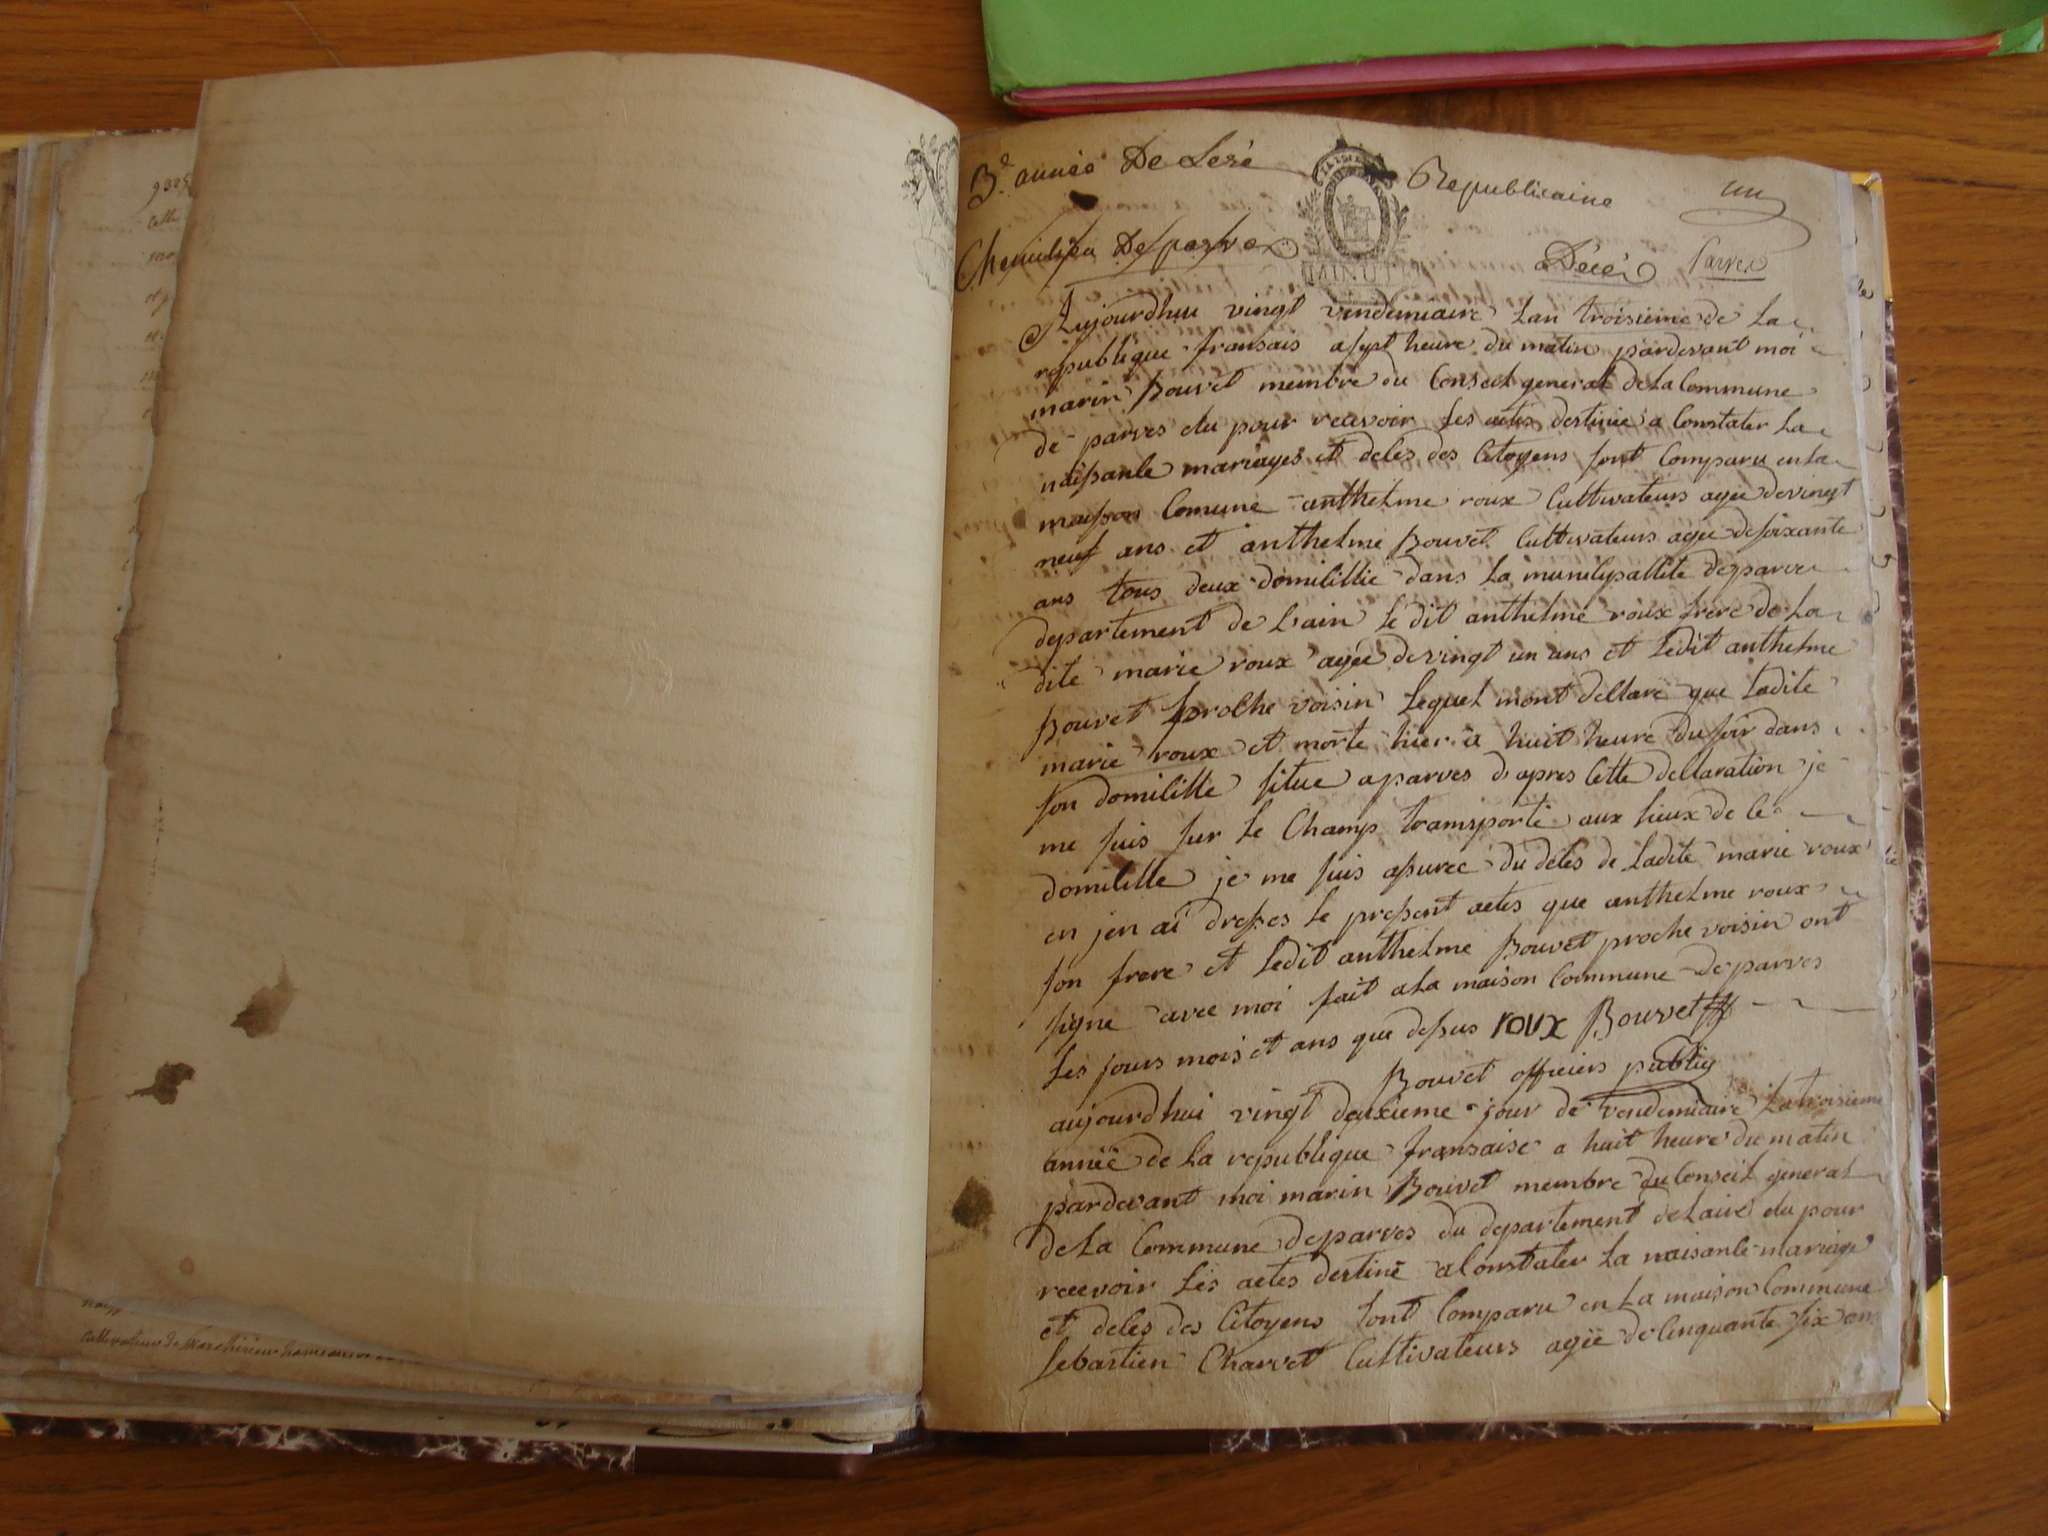 3.e année De Lere Republicaine un
Chemilieu De parves MINUTE Décès Parves
Aujourdhui vingt vendemiaire Lan troisieme de La
republique fransais a sept heure du matin pardevant moi
marin Bouvet membre du Conseil general de La Commune
de parves elu pour recevoir Les actes destinée a Constater La
naissance mariages et deces des Citoyens sont Comparu en La
maisson Comune anthelme roux Cultivateurs agée de vingt
neuf ans et anthelme Bouvet Cultivateurs agée de soixante
ans tous deux domicillie dans La municipallite de parves
departement de L'ain Le dit anthelme roux frere de La
dite marie roux agée de vingt un ans et Ledit anthelme
Bouvet proche voisin Lequel mont dellare que Ladite
marie roux et morte hier a huit heure du soir dans
son domicille situe a parves d'apres Cette dellaration je
me suis sur Le Champ transporté aux Lieux de Ce
domicille je me suis assuree du deces de Ladite marie roux
en jen ai dresses Le pressent actes que anthelme roux
son frere et Ledit anthelme Bouvet proche voisin ont
signe avec moi fait a La maison Commune de parves
Les jours mois et ans que dessus roux Bouvet
Bouvet officiers public
aujourdhui vingt deuxieme jour de vendemiaire La troisieme
année de La republique fransaise a huit heure du matin
pardevant moi marin Bouvet membre du Conseil general
de La Commune de parves du departement de Lain elu pour
recevoir Les actes destiné a Constater La naisance mariage
et deces des Citoyens sont Comparu en La maison Commune
sebastien Charvet Cultivateurs agée de Cinquante six ans